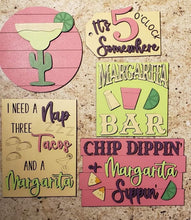 It's
5 O'CLOCK
Somewhere
MARGARITA
BAR
I NEED A Nap
THREE
Tacos
AND A
Margarita
CHIP DIPPIN'
+ Margarita
Sippin'